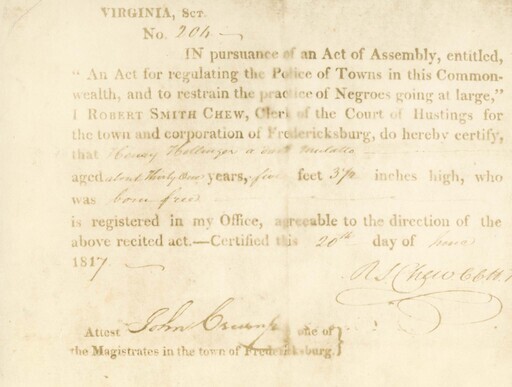 VIRGINIA, Sct.
No. 204
IN pursuance of an Act of Assembly, entitled,
" An Act for regulating the Police of Towns in this Common-
wealth, and to restrain the practice of Negroes going at large,"
I ROBERT SMITH CHEW, Clerk of the Court of Hustings for
the town and corporation of Fredericksburg, do hereby certify,
that Henry a dark Mulatto
aged about thirty one years, five feet 3½ inches high, who
was born free
is registered in my Office, agreeable to the direction of the
above recited act.—Certified this 20th day of
1817
R S Chew
Attest John one of
the Magistrates in the town of Fredericksburg.